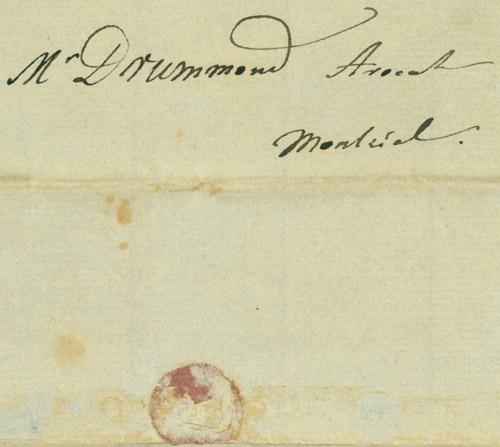 Mr Drummond Avocat
Montréal.